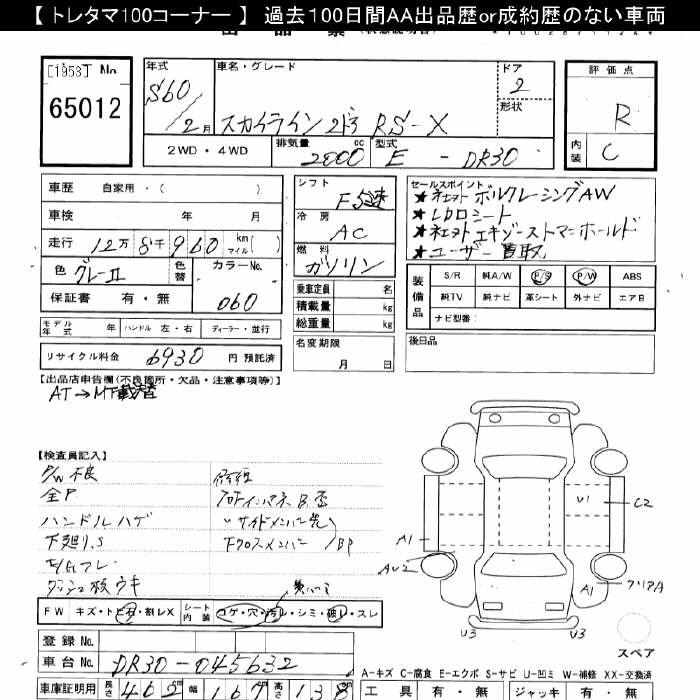 【 トレタマ100コーナー 】 過去100日間AA出品歴or成約歴のない車両
[1953] No
65012
年式
S60
/2月
車名・グレード
スカイライン 2ドア RS-X
ドア
2
形状
2WD・4WD
排気量
2000
cc
型式
E - DR30
評価点
R
内装
C
車歴 自家用・( )
車検 年 月
走行 12万8千960 km マイル( )
色 グレーⅡ
色替
カラーNo.
060
保証書 有・無
モデル年式 年 ハンドル 左・右 ディーラー・並行
リサイクル料金 6930 円 預託済
シフト
F5速
冷房
AC
燃料
ガソリン
乗車定員 名
積載量 kg
総重量 kg
名変期限
月 日
セールスポイント
★社外 ボルクレーシングAW
★レカロシート
★社外 エキゾーストマニホールド
★ユーザー買取
装備品
S/R 純A/W P/S P/W ABS
純TV 純ナビ 革シート 外ナビ エアB
ナビ型番:
後日品
【出品店申告欄(不良箇所・欠品・注意事項等)】
AT→MT載替
【検査員記入】
P/W不良
全P
ハンドルハゲ
下廻リ.S
ダッシュ板ウキ
修復
フロントインパネ B.歪
〃サイドメンバー先
下クロスメンバー /BP
FW キズ・トビ石・割レX
シート内装 コゲ・穴・汚レ・シミ・破レ・スレ
登録 No.
車台 No. DR30-045632
車庫証明用 長さ 462 cm 幅 167 高さ 138
U1
C2
A1
AU2
A1
U3
U3
スペア
A-キズ C-腐食 E-エクボ S-サビ U-凹ミ W-補修 XX-交換済
工具 有・無 ジャッキ 有・無